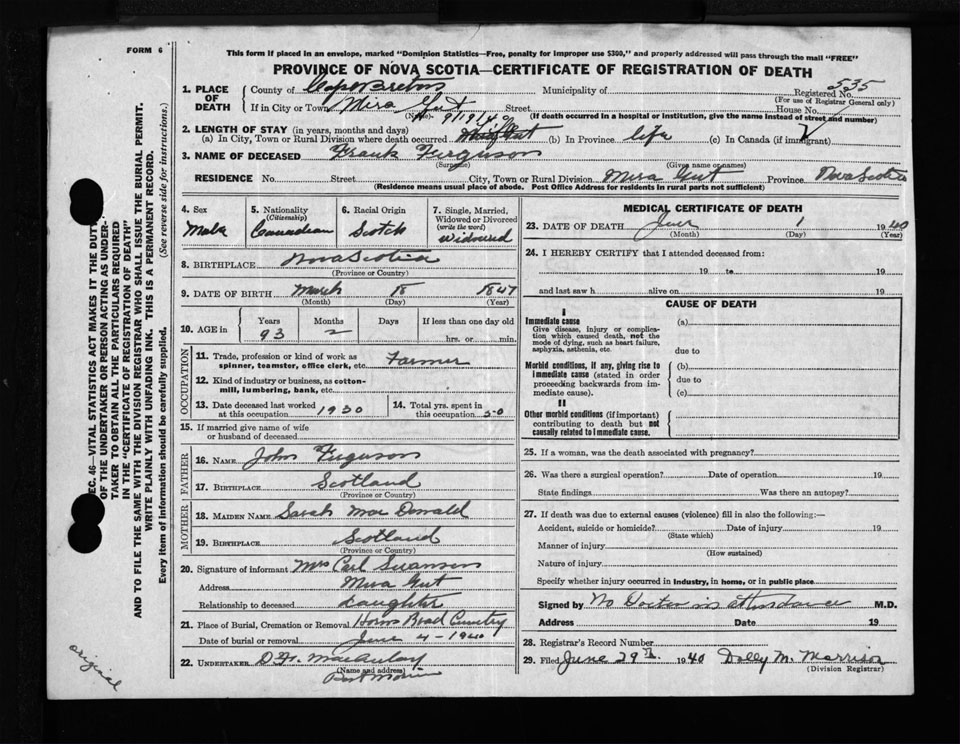 FORM 6
This form if placed in an envelope, marked "Dominion Statistics—Free, penalty for improper use $300," and properly addressed will pass through the mail "FREE"
PROVINCE OF NOVA SCOTIA—CERTIFICATE OF REGISTRATION OF DEATH
1. PLACE OF DEATH
County of Cape Breton Municipality of Registered No. 535
(For use of Registrar General only)
If in City or Town Mira Gut Street House No.
(If death occurred in a hospital or institution, give the name instead of street and number)
2. LENGTH OF STAY (in years, months and days)
(a) In City, Town or Rural Division where death occurred (b) In Province life (c) In Canada (if immigrant)
3. NAME OF DECEASED Frank Ferguson
(Surname) (Given name or names)
RESIDENCE No. Street City, Town or Rural Division Mira Gut Province Nova Scotia
(Residence means usual place of abode. Post Office Address for residents in rural parts not sufficient)
4. Sex Male
5. Nationality (Citizenship) Canadian
6. Racial Origin Scotch
7. Single, Married, Widowed or Divorced (write the word) widowed
8. BIRTHPLACE Nova Scotia
(Province or Country)
9. DATE OF BIRTH March 18 1847
(Month) (Day) (Year)
10. AGE in Years Months Days If less than one day old
93 2 hrs. or min.
OCCUPATION
11. Trade, profession or kind of work as spinner, teamster, office clerk, etc. Farmer
12. Kind of industry or business, as cotton-mill, lumbering, bank, etc.
13. Date deceased last worked at this occupation 1930
14. Total yrs. spent in this occupation 50
15. If married give name of wife or husband of deceased
FATHER
16. NAME John Ferguson
17. BIRTHPLACE Scotland
(Province or Country)
MOTHER
18. MAIDEN NAME Sarah MacDonald
19. BIRTHPLACE Scotland
(Province or Country)
20. Signature of informant Mrs Carl Swanson
Address Mira Gut
Relationship to deceased Daughter
21. Place of Burial, Cremation or Removal Cemetery
Date of burial or removal June 4-1940
22. UNDERTAKER
(Name and address) Port Morien
MEDICAL CERTIFICATE OF DEATH
23. DATE OF DEATH June 1 1940
(Month) (Day) (Year)
24. I HEREBY CERTIFY that I attended deceased from:
19 to 19
and last saw h alive on 19
CAUSE OF DEATH
I
Immediate cause
Give disease, injury or complication which caused death, not the mode of dying, such as heart failure, asphyxia, asthenia, etc.
(a)
due to
Morbid conditions, if any, giving rise to immediate cause (stated in order proceeding backwards from immediate cause).
(b)
due to
(c)
II
Other morbid conditions (if important) contributing to death but not causally related to immediate cause.
25. If a woman, was the death associated with pregnancy?
26. Was there a surgical operation? Date of operation 19
State findings Was there an autopsy?
27. If death was due to external causes (violence) fill in also the following:—
Accident, suicide or homicide? Date of injury 19
(State which)
Manner of injury
(How sustained)
Nature of injury
Specify whether injury occurred in industry, in home, or in public place
Signed by No Doctor in attendance M.D.
Address Date 19
28. Registrar's Record Number
29. Filed June 29th 1940 Dolly M. Morrison
(Division Registrar)
SEC. 46—VITAL STATISTICS ACT MAKES IT THE DUTY
OF THE UNDERTAKER OR PERSON ACTING AS UNDER-
TAKER TO OBTAIN ALL THE PARTICULARS REQUIRED
IN THE "CERTIFICATE OF REGISTRATION OF DEATH"
AND TO FILE THE SAME WITH THE DIVISION REGISTRAR WHO SHALL ISSUE THE BURIAL PERMIT.
WRITE PLAINLY WITH UNFADING INK. THIS IS A PERMANENT RECORD.
Every item of information should be carefully supplied. (See reverse side for instructions.)
original